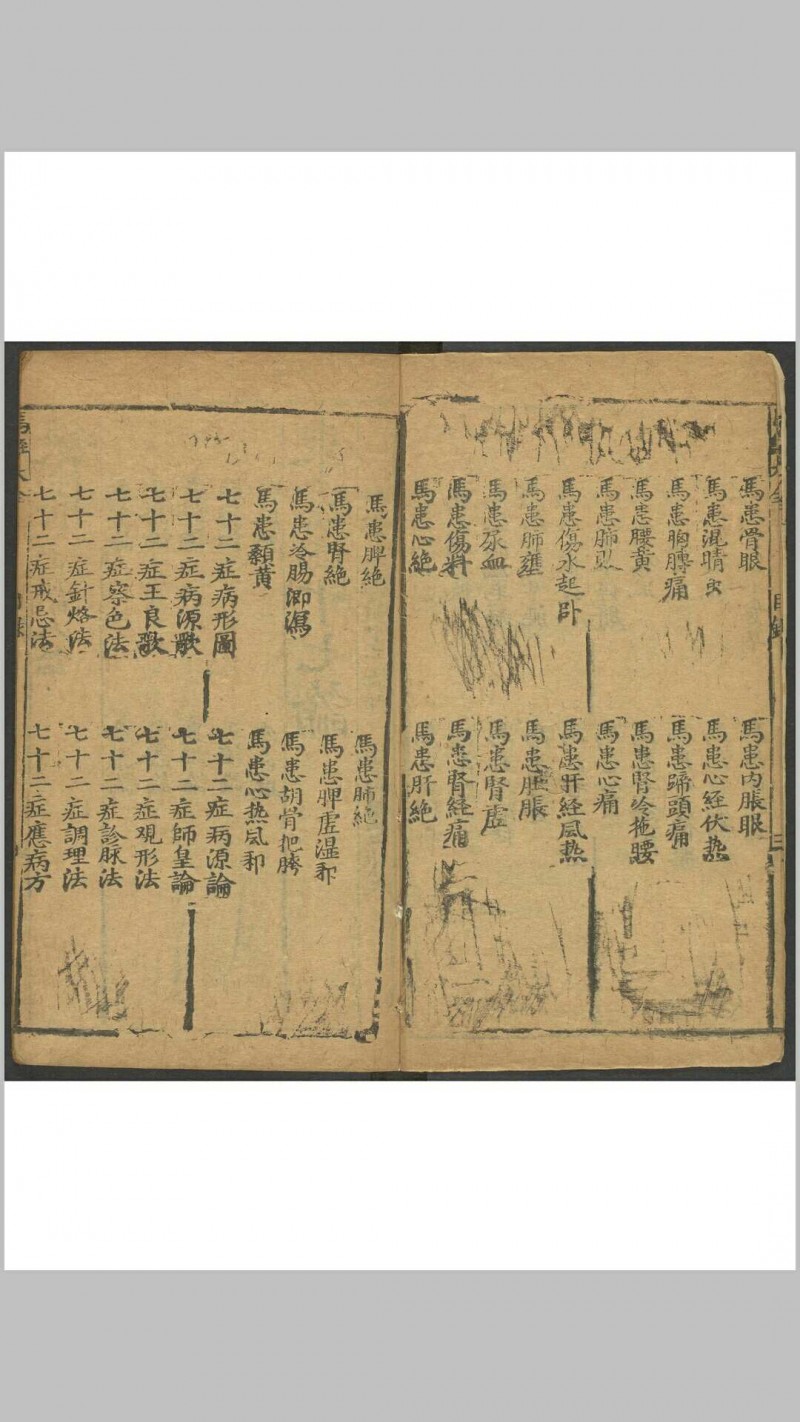 馬患骨眼
馬患內脹眼
馬患混睛虫
馬患心經伏热
馬患胸膊痛
馬患蹄頭痛
馬患腰黄
馬患腎冷拖腰
馬患肺敗
馬患心痛
馬患傷水起卧
馬患肝經風热
馬患肺壅
馬患肚脹
馬患尿血
馬患腎虛
馬患傷料
馬患腎經痛
馬患心絶
馬患肝絶
馬患脾絶
馬患肺絶
馬患腎絶
馬患脾虛湿邪
馬患冷腸瀉
馬患胡骨把胯
馬患顙黄
馬患心热風邪
七十二症病形圖
七十二症病源論
七十二症病源歌
七十二症師皇論
七十二症王良歌
七十二症观形法
七十二症察色法
七十二症診脉法
七十二症針烙法
七十二症調理法
七十二症戒忌法
七十二症應病方
馬經大全
目錄
目錄
三